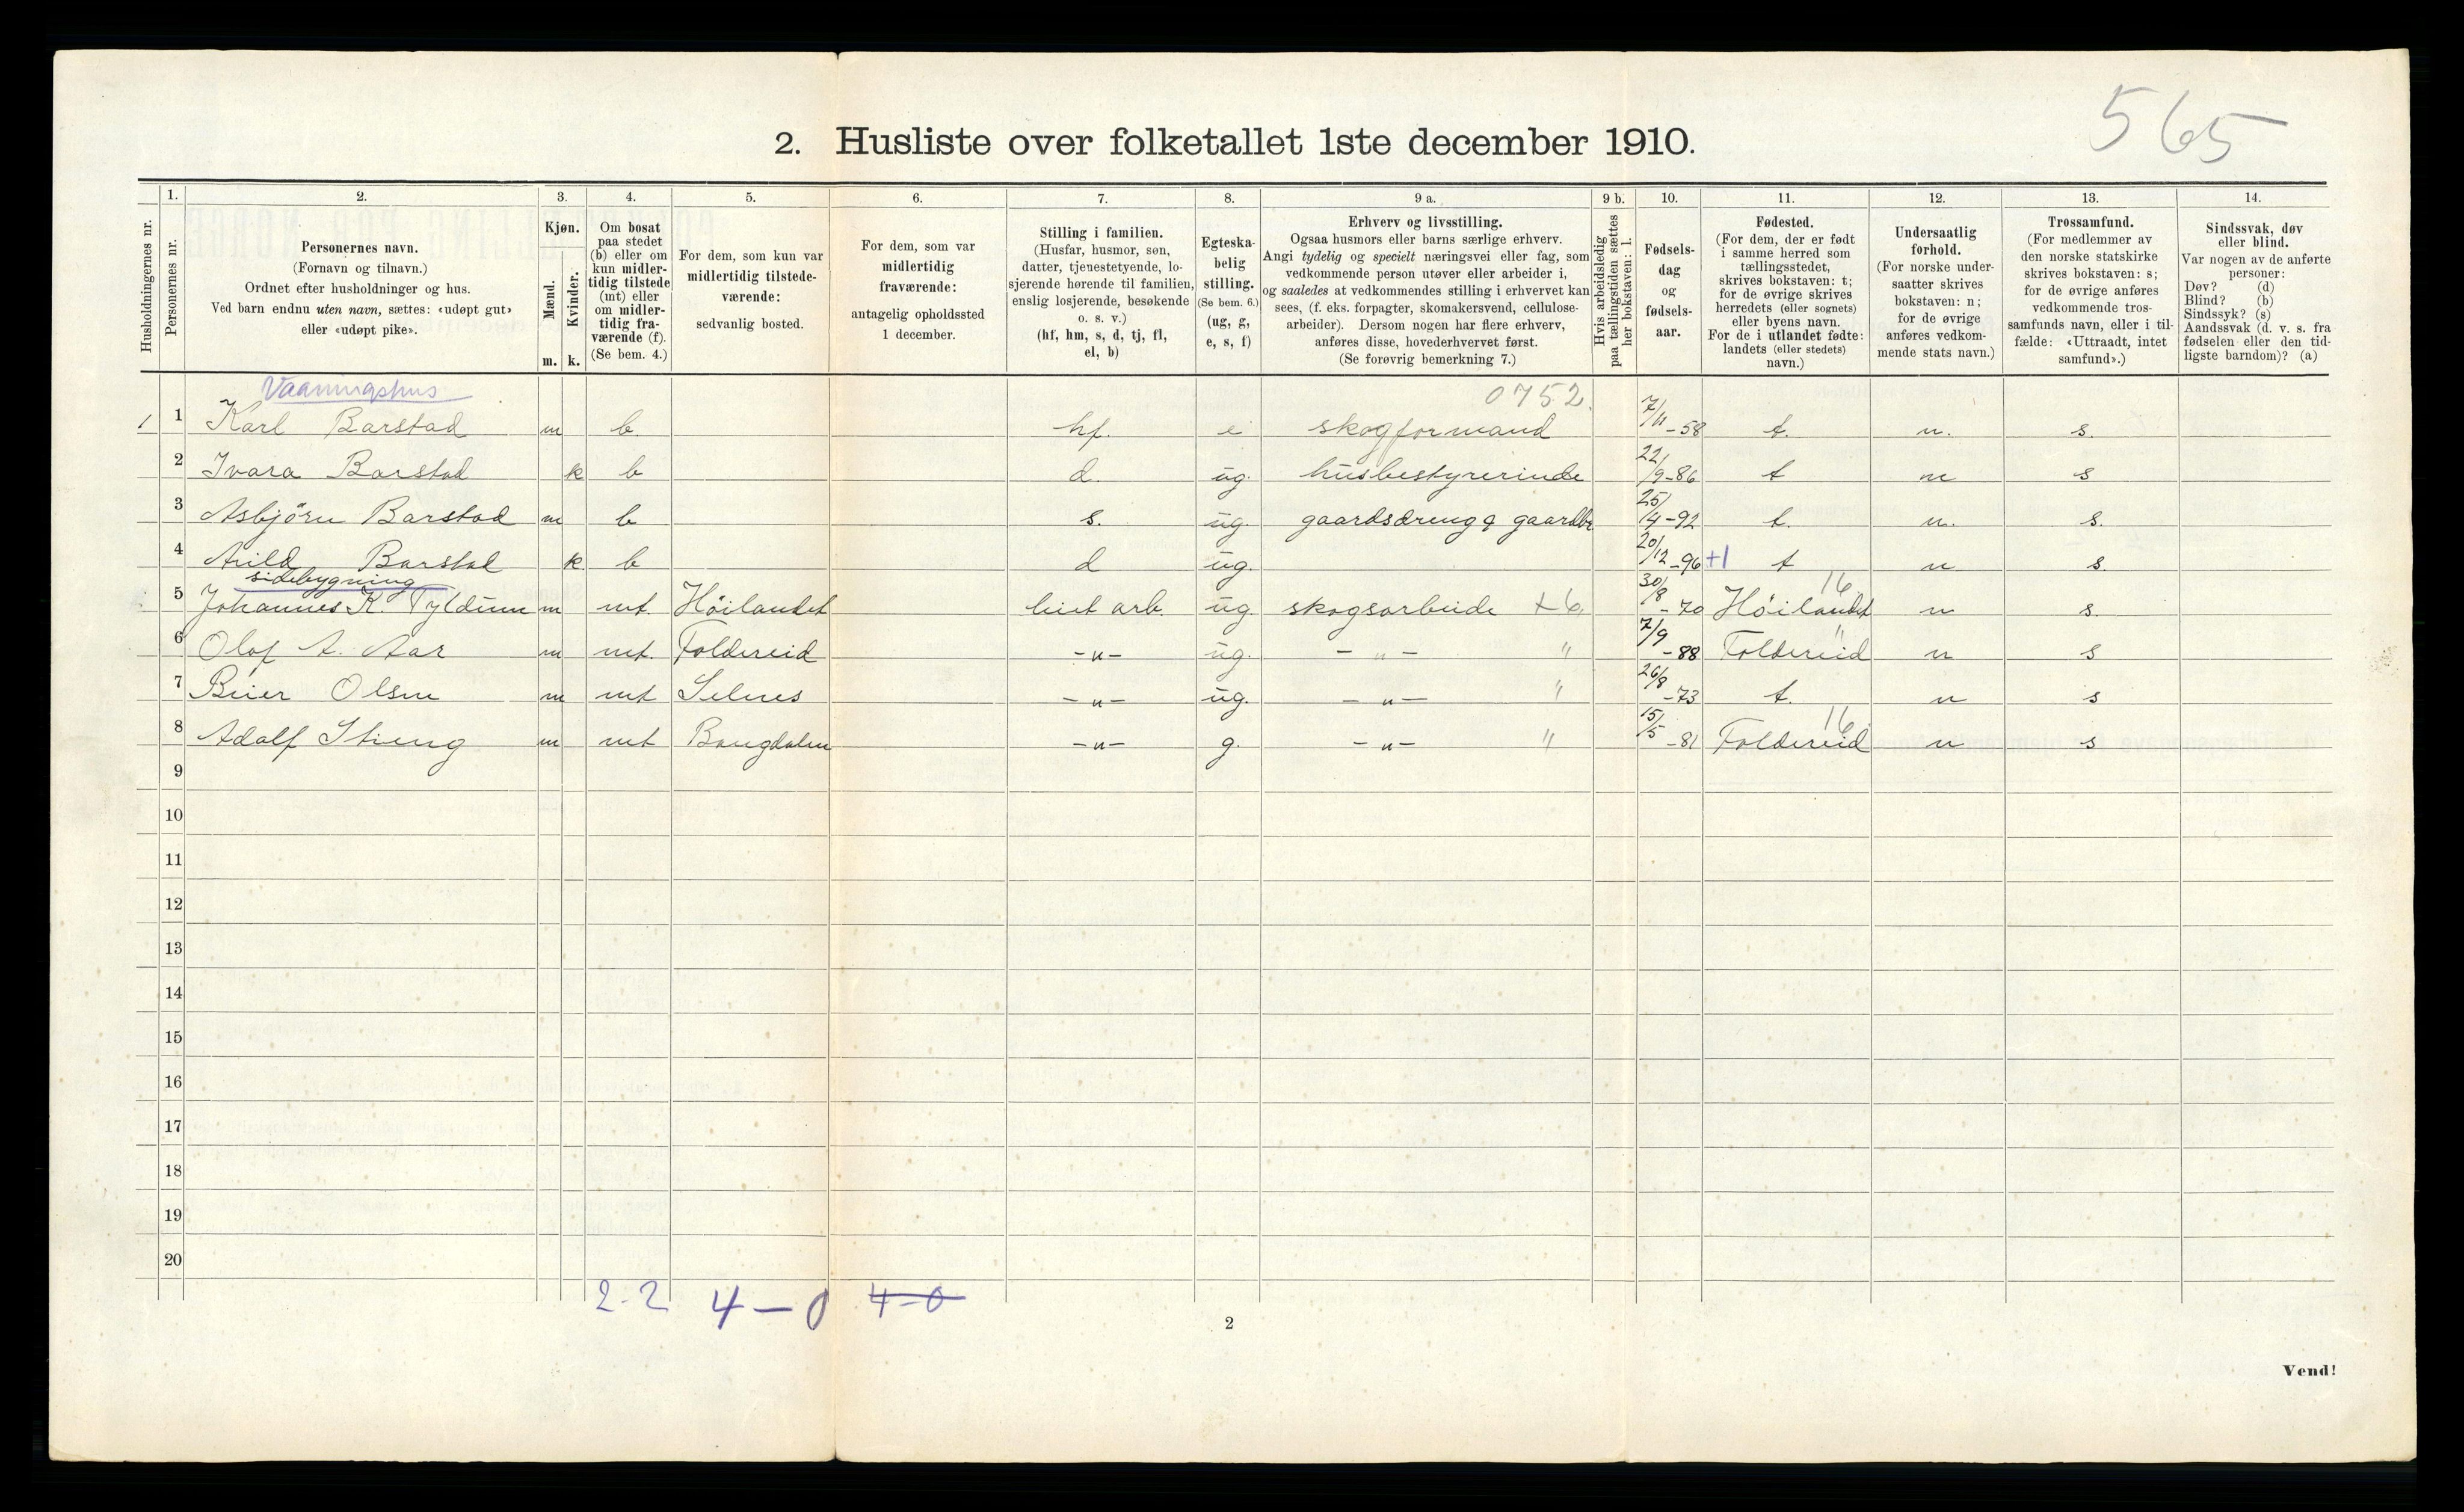 565
2. Husliste over folketallet 1ste december 1910.
1. 2. 3. 4. 5. 6. 7. 8. 9 a. 9 b. 10. 11. 12. 13. 14.
Husholdningernes nr.
Personernes nr.
Personernes navn.
(Fornavn og tilnavn.)
Ordnet efter husholdninger og hus.
Ved barn endnu uten navn, sættes: «udøpt gut»
eller «udøpt pike».
Kjøn.
Mænd.
Kvinder.
m. k.
Om bosat
paa stedet
(b) eller om
kun midler-
tidig tilstede
(mt) eller
om midler-
tidig fra-
værende (f).
(Se bem. 4.)
For dem, som kun var
midlertidig tilstede-
værende:
sedvanlig bosted.
For dem, som var
midlertidig
fraværende:
antagelig opholdssted
1 december.
Stilling i familien.
(Husfar, husmor, søn,
datter, tjenestetyende, lo-
sjerende hørende til familien,
enslig losjerende, besøkende
o. s. v.)
(hf, hm, s, d, tj, fl,
el, b)
Egteska-
belig
stilling.
(Se bem. 6.)
(ug, g,
e, s, f)
Erhverv og livsstilling.
Ogsaa husmors eller barns særlige erhverv.
Angi tydelig og specielt næringsvei eller fag, som
vedkommende person utøver eller arbeider i,
og saaledes at vedkommendes stilling i erhvervet kan
sees, (f. eks. forpagter, skomakersvend, cellulose-
arbeider). Dersom nogen har flere erhverv,
anføres disse, hovederhvervet først.
(Se forøvrig bemerkning 7.)
Hvis arbeidsledig
paa tællingstiden sættes
her bokstaven: l.
Fødsels-
dag
og
fødsels-
aar.
Fødested.
(For dem, der er født
i samme herred som
tællingsstedet,
skrives bokstaven: t;
for de øvrige skrives
herredets (eller sognets)
eller byens navn.
For de i utlandet fødte:
landets (eller stedets)
navn.)
Undersaatlig
forhold.
(For norske under-
saatter skrives
bokstaven: n;
for de øvrige
anføres vedkom-
mende stats navn.)
Trossamfund.
(For medlemmer av
den norske statskirke
skrives bokstaven: s;
for de øvrige anføres
vedkommende tros-
samfunds navn, eller i til-
fælde: «Uttraadt, intet
samfund».)
Sindssvak, døv
eller blind.
Var nogen av de anførte
personer:
Døv? (d)
Blind? (b)
Sindssyk? (s)
Aandssvak (d. v. s. fra
fødselen eller den tid-
ligste barndom)? (a)
Vaaningshus 0752.
1 1 Karl Barstad m b. hf. e skogformand 7/11 -58 t. n. s.
2 Ivara Barstad k b d. ug. husbestyrerinde 22/9-86 t n s
3 Asbjörn Barstad m b s. ug. gaardsdreng g gaardbr 25/4-92 t. n. s.
4 Arild Barstad k b d ug. 20/12-96 +1 t n s.
sidebygning 16
5 Johannes K. Tyldum m mt. Höilandet leiet arb. ug. skogsarbeide +6 30/8 -70 Höilandet n s.
6 Olaf A. Aar m mt. Foldereid -"- ug. -"- " 7/9 -88 Foldereid " n s
7 Beier Olsen m mt Selnes -"- ug. -"- " 26/8 -73 t. n s
8 Adolf Stieng m mt Bangdalen -"- g. -"- " 15/5 -81 Foldereid 16 n s
9
10
11
12
13
14
15
16
17
18
19
20
2-2 4-0 4-0
2
Vend!